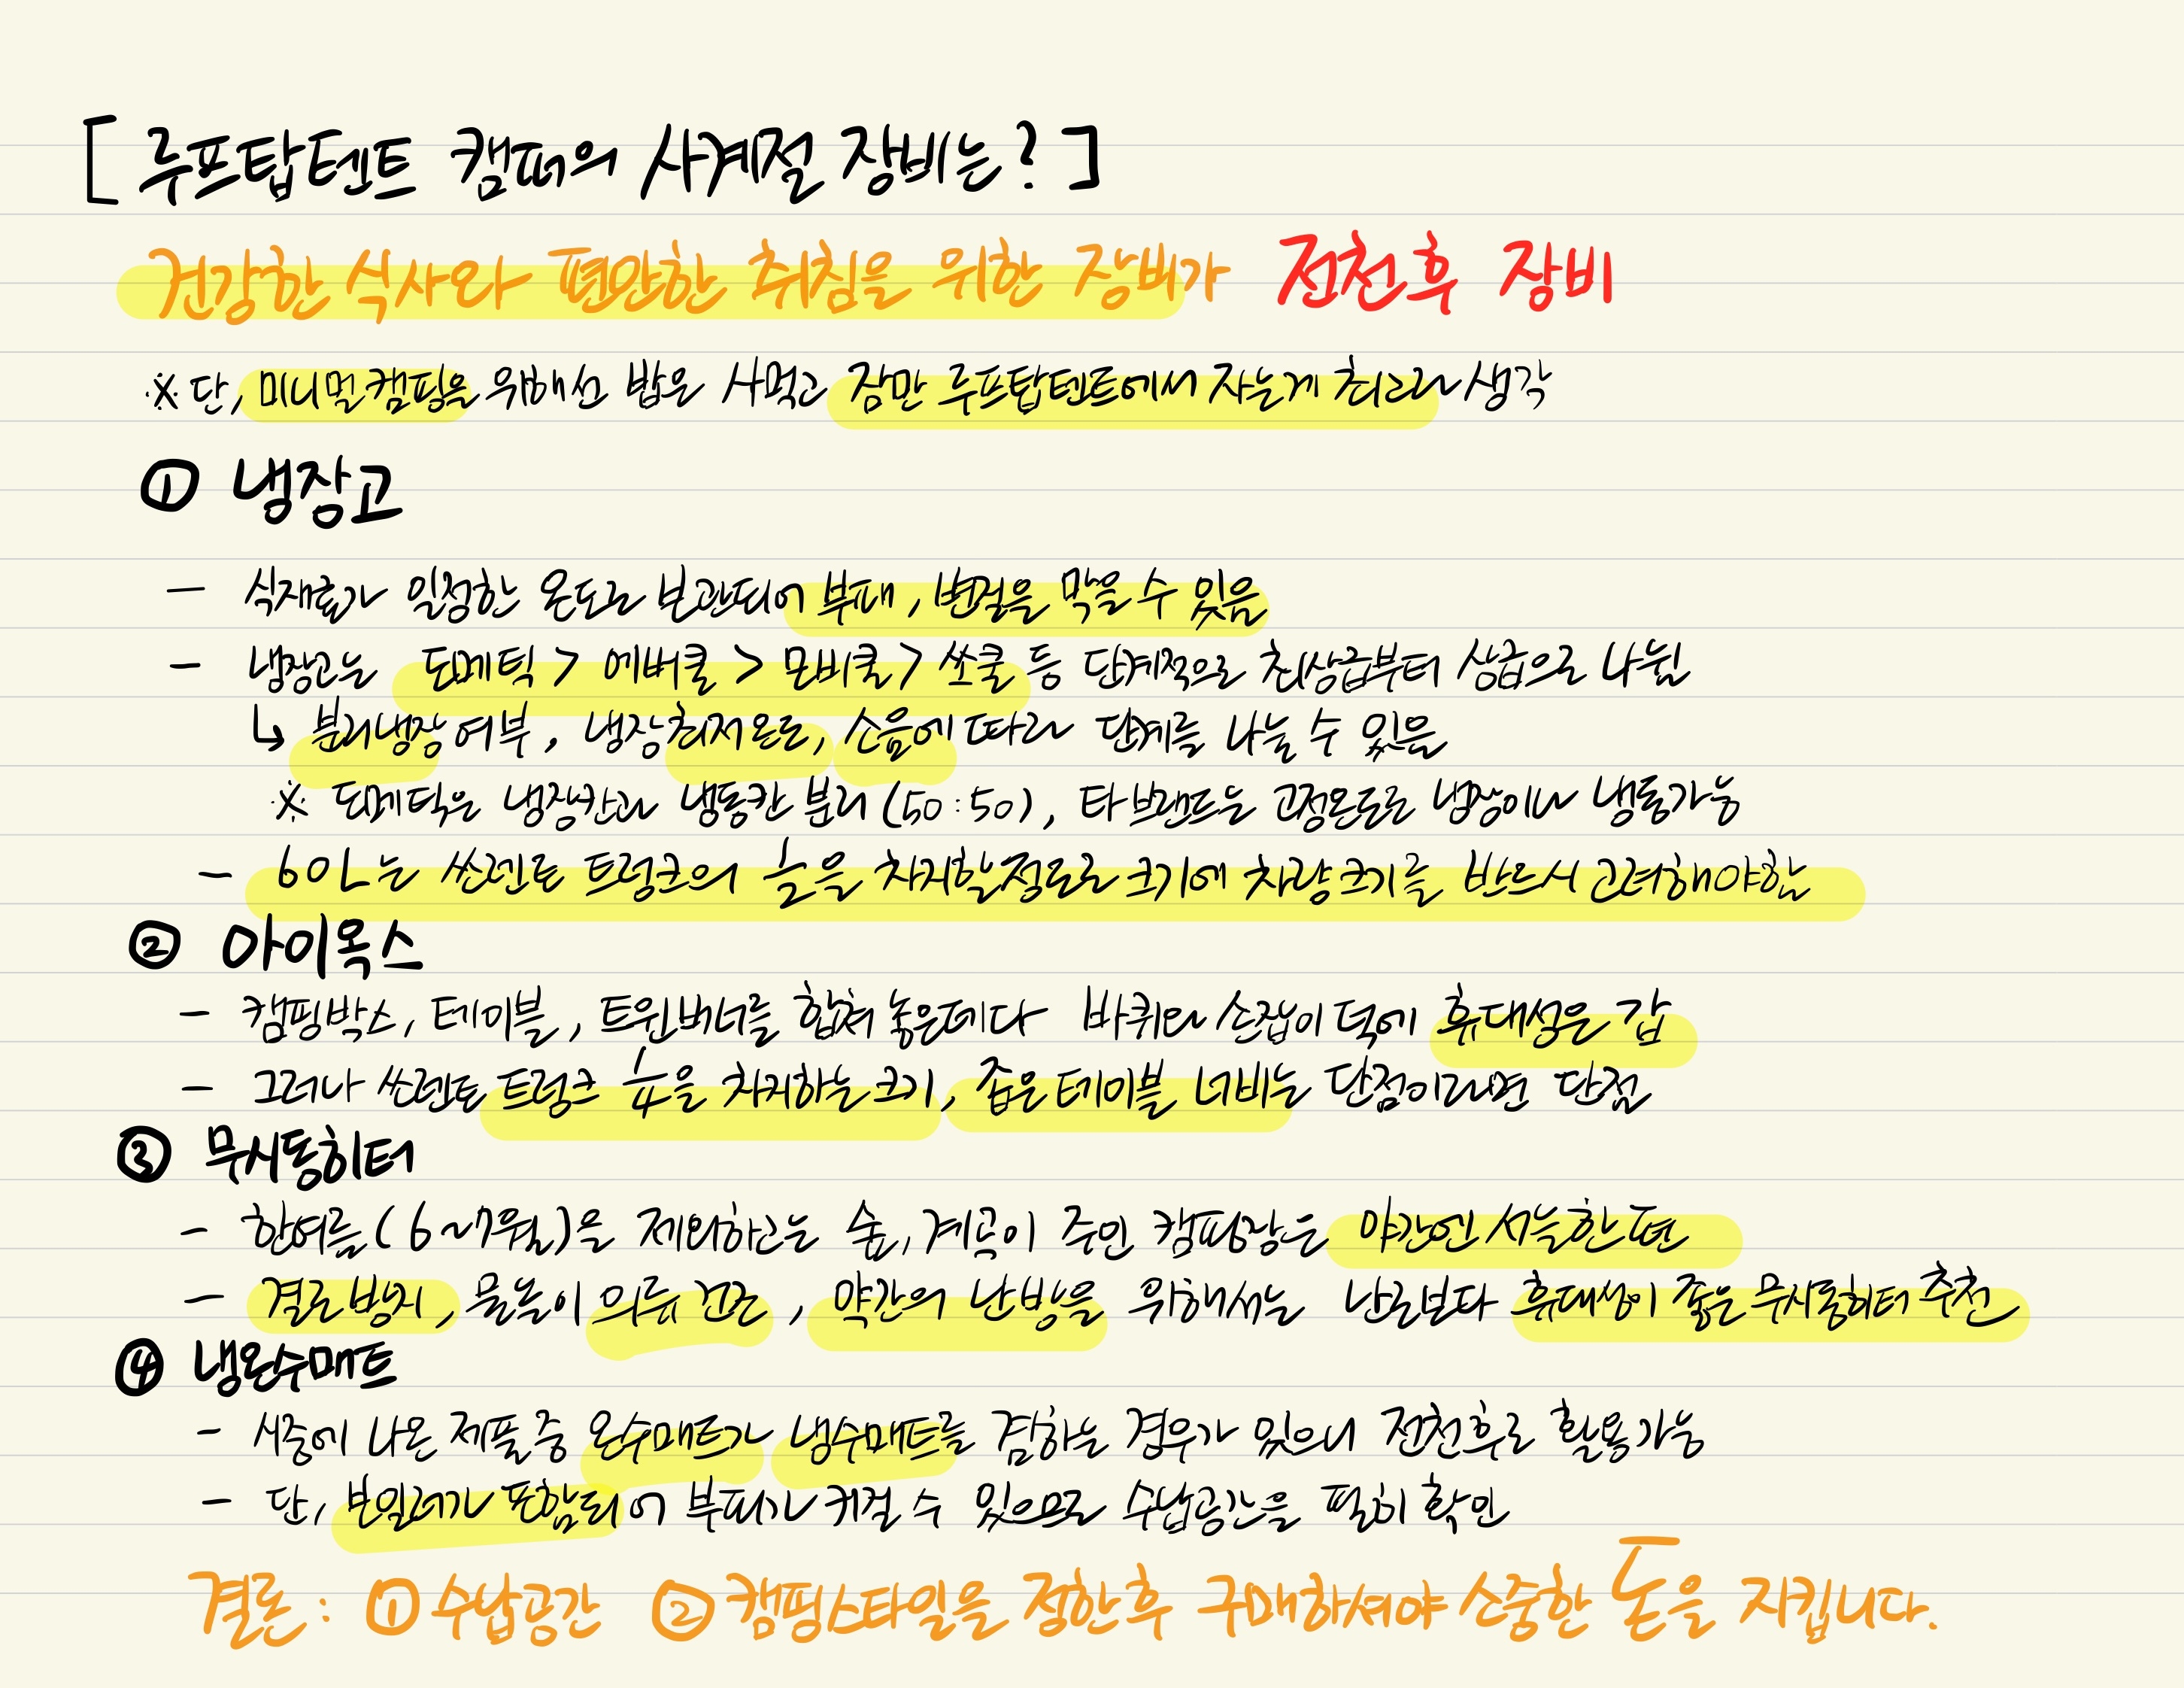 [ 루프탑텐트 캠퍼의 사계절 장비는? ]
건강한 식사와 편안한 취침을 위한 장비가 전천후 장비
※ 단, 미니멀캠핑을 위해선 밥은 사먹고 잠만 루프탑텐트에서 자는게 최고라 생각
① 냉장고
- 식재료가 일정한 온도로 보관되어 부패, 변질을 막을 수 있음
- 냉장고는 도메틱 > 에버쿨 > 모비쿨 > 쏘쿨 등 단계적으로 최상급부터 상급으로 나뉨
↳ 분리냉장 여부, 냉장최저온도, 소음에 따라 단계를 나눌 수 있음
※ 도메틱은 냉장칸과 냉동칸 분리 (50:50), 타브랜드는 고정온도로 냉장이나 냉동가능
- 60L는 쏘렌토 트렁크의 을 차지할정도로 크기에 차량크기를 반드시 고려해야함
② 아이옥스
- 캠핑박스, 테이블, 트윈버너를 합쳐 놓은데다 바퀴와 손잡이 덕에 휴대성은 갑
- 그러나 쏘렌토 트렁크 1/4을 차지하는 크기, 좁은 테이블 너비는 단점이라면 단점
③ 무시동히터
- 한여름(6~7월)을 제외하고는 숲, 계곡이 주인 캠핑장은 야간엔 서늘한 편
- 결로방지, 물놀이 의류 건조, 약간의 난방을 위해서는 난로보다 휴대성이 좋은 무시동히터 추천
④ 냉온수매트
- 시중에 나온 제품중 온수매트가 냉수매트를 겸하는 경우가 있으니 전천후로 활용가능
- 단, 보일러가 포함되어 부피가 커질 수 있으므로 수납공간을 필히 확인
결론 : ① 수납공간 ② 캠핑스타일을 정한후 구매하셔야 소중한 돈을 지킵니다.